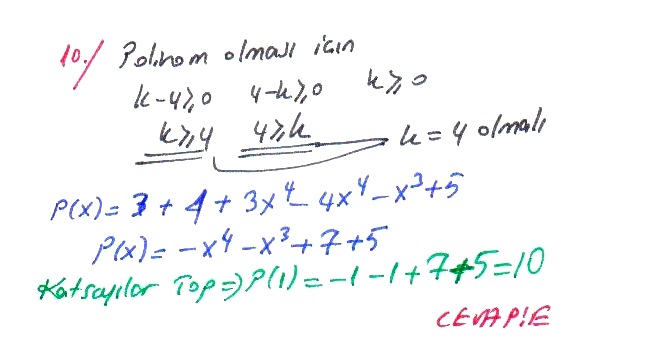 10./ Polinom olması için
k-4≥0 4-k≥0 k≥0
k≥4 4≥k k=4 olmalı
P(x)= 3 + 4 + 3x⁴ - 4x⁴ - x³+5
P(x)= -x⁴ -x³ + 7 +5
Katsayılar Top⇒ P(1) = -1 -1 +7+5=10
CEVAP!E